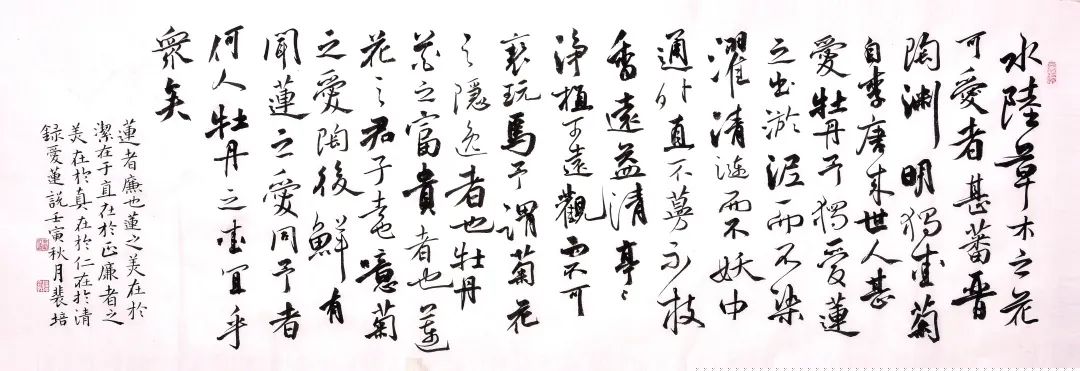 水陸草木之花
可愛者甚蕃晋
陶渊明獨愛菊
自李唐来世人甚
愛牡丹予獨愛蓮
之出淤泥而不染
濯清漣而不妖中
通外直不蔓不枝
香遠益清亭〻
淨植可遠觀而不可
褻玩焉予謂菊花
之隱逸者也牡丹
花之富貴者也蓮
花之君子者也噫菊
之愛陶後鮮有
聞蓮之愛同予者
何人牡丹之愛宜乎
衆矣
蓮者廉也蓮之美在於
潔在于直在於正廉者之
美在於真在於仁在於清
録愛蓮説壬寅秋月裴培